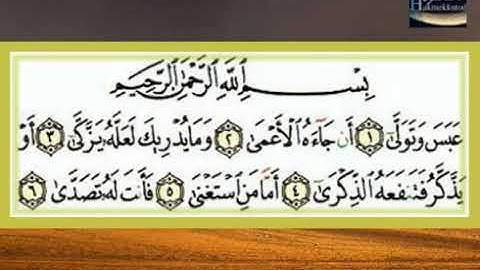 Hakmekkutoe
بِسْمِ اللَّهِ الرَّحْمَٰنِ الرَّحِيمِ
عَبَسَ وَتَوَلَّىٰٓ ١ أَن جَآءَهُ الْأَعْمَىٰ ٢ وَمَا يُدْرِيكَ لَعَلَّهُ يَزَّكَّىٰٓ ٣ أَوْ
يَذَّكَّرُ فَتَنفَعَهُ الذِّكْرَىٰٓ ٤ أَمَّا مَنِ اسْتَغْنَىٰ ٥ فَأَنتَ لَهُ تَصَدَّىٰ ٦